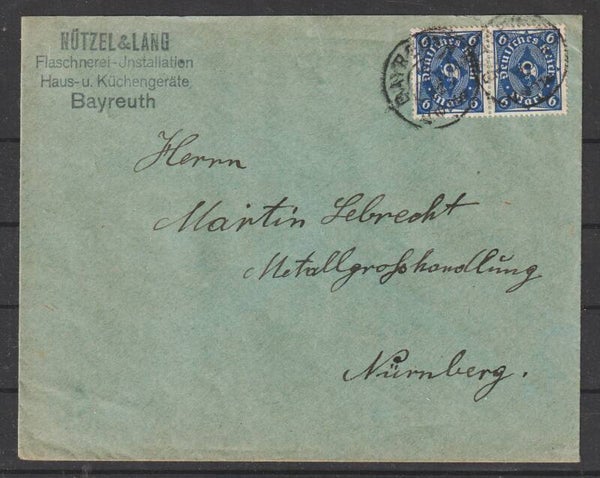 NÜTZEL & LANG
Flaschnerei-Jnstallation
Haus- u. Küchengeräte
Bayreuth
6 Deutsches Reich 6
6 Mark 6
6 Deutsches Reich 6
6 Mark 6
Herrn
Martin Lebrecht
Metallgrosshandlung
Nürnberg.